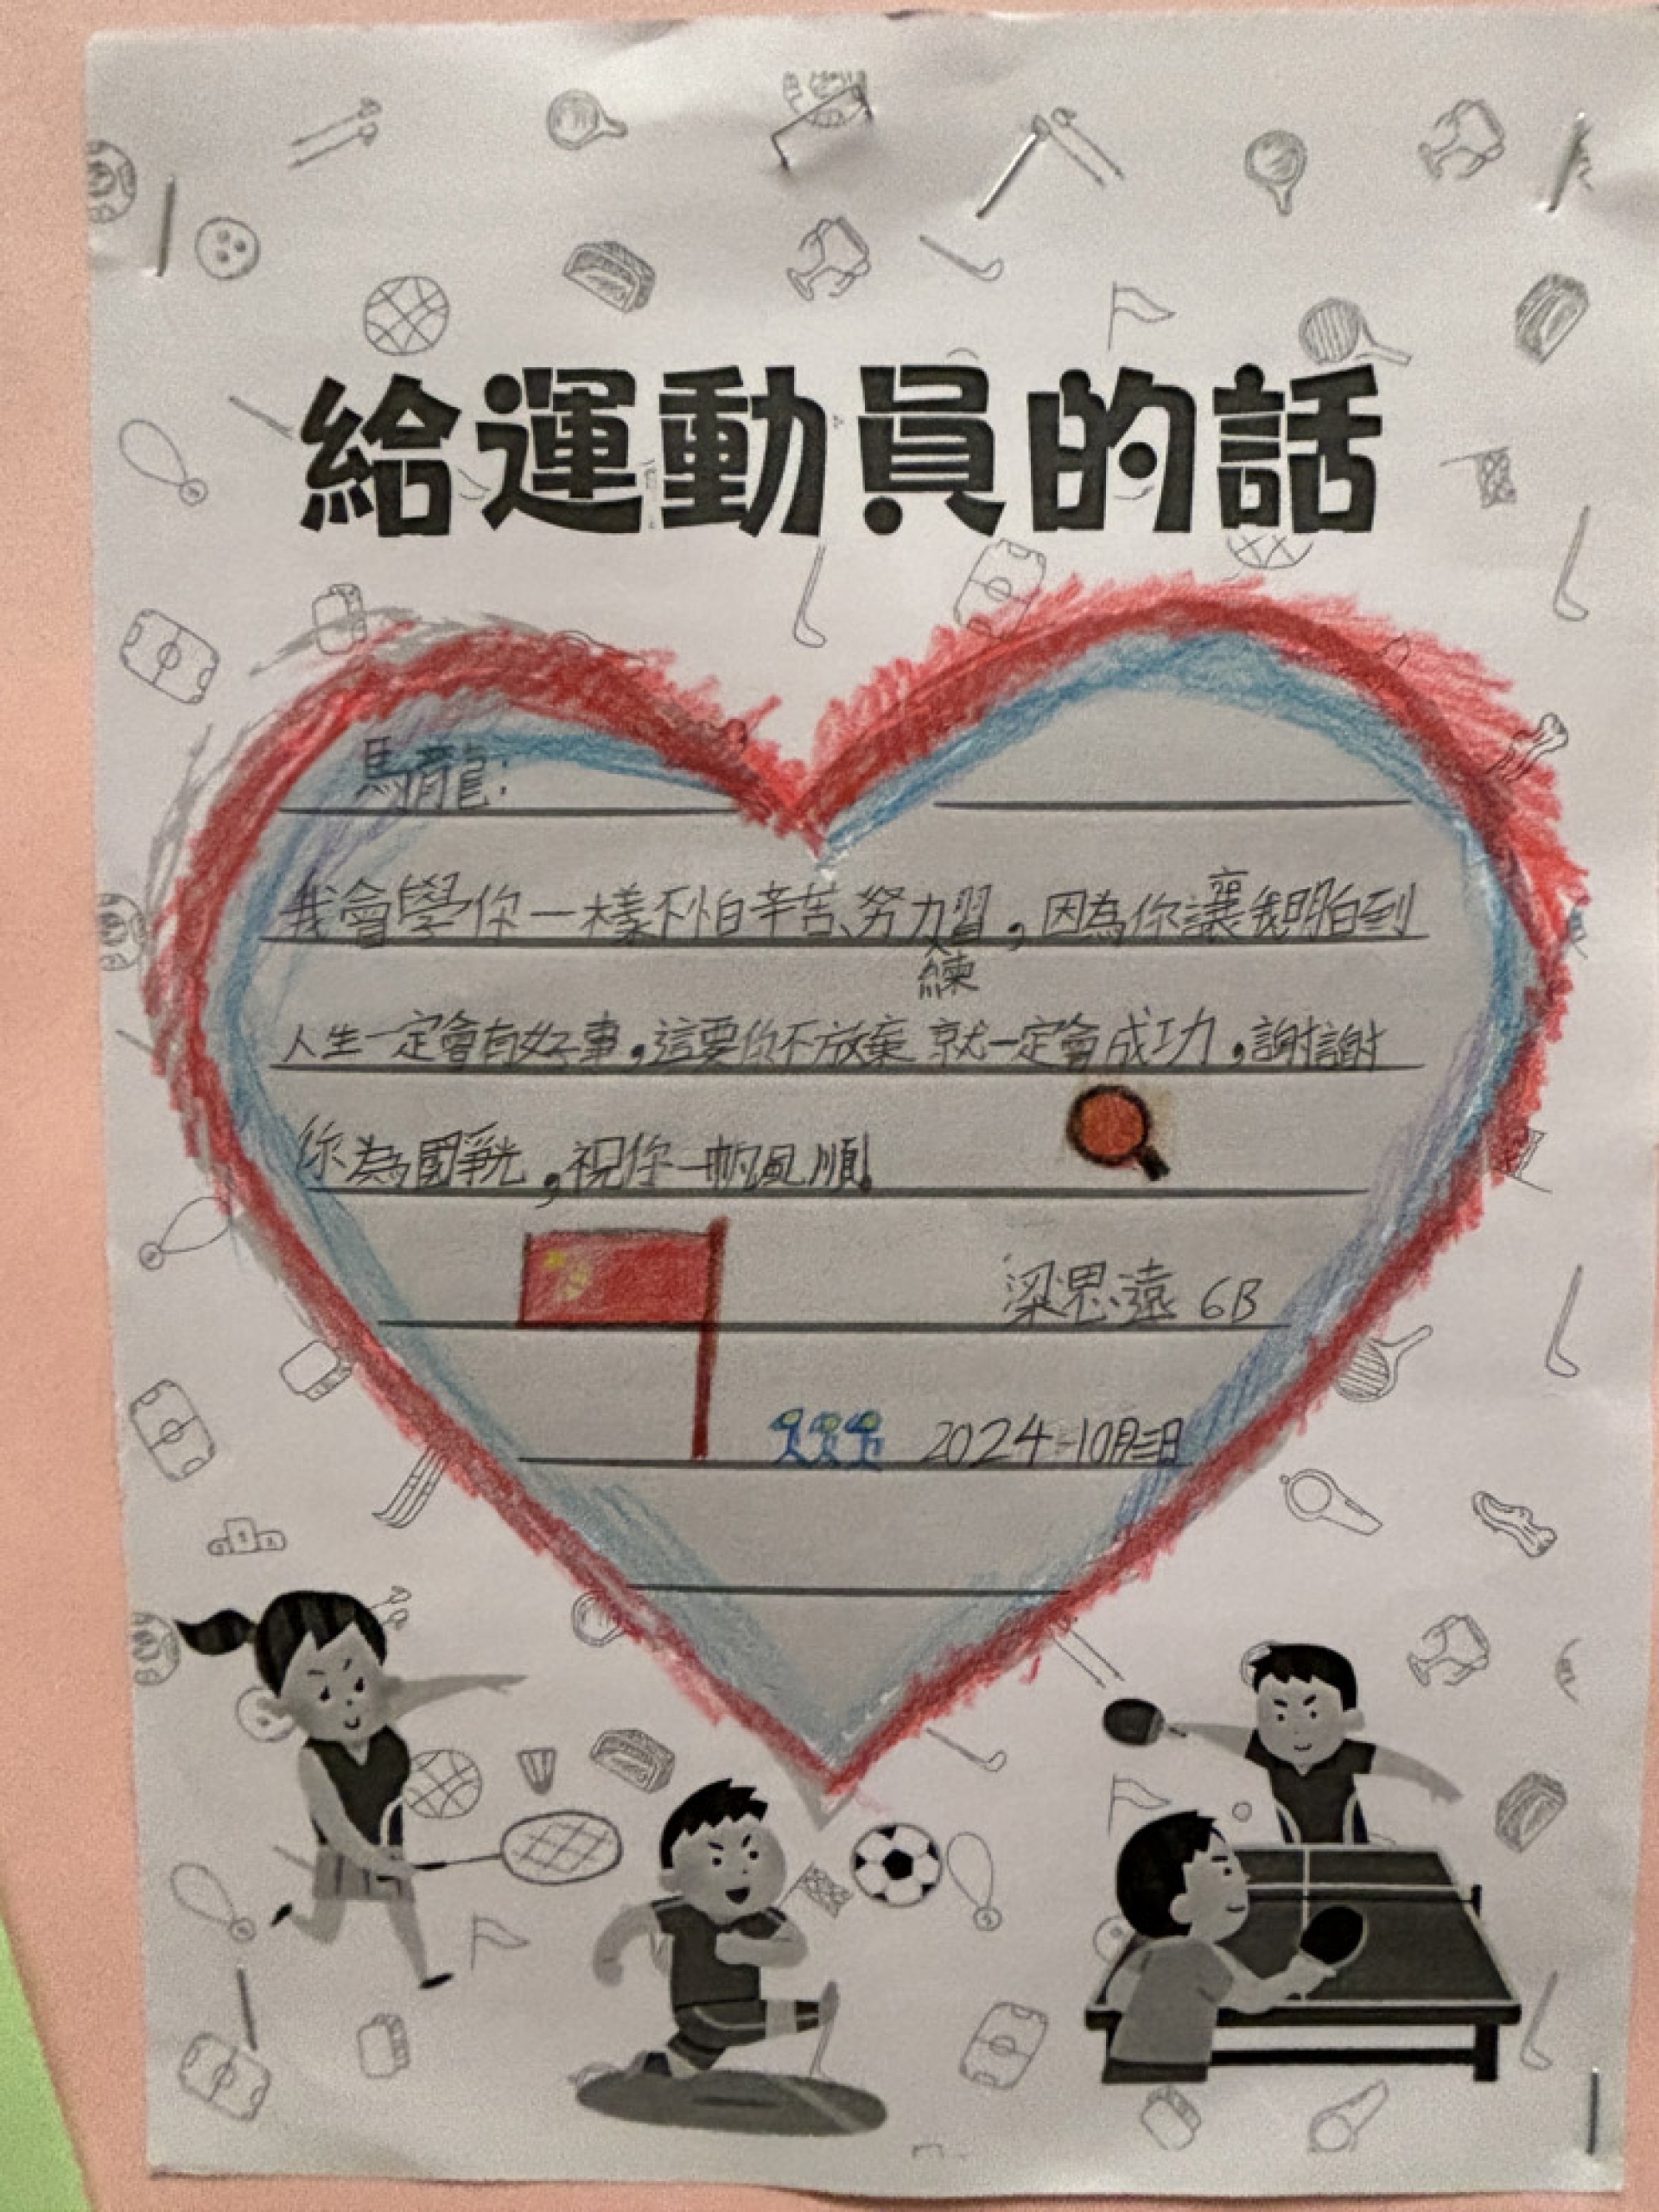 給運動員的話
馬龍:
我會學你一樣不怕辛苦、努力練習，因為你讓我明白到
人生一定會有好事，這要你不放棄 就一定會成功，謝謝
你為國爭光，祝你一帆風順!
梁思遠 6B
2024-10月三日